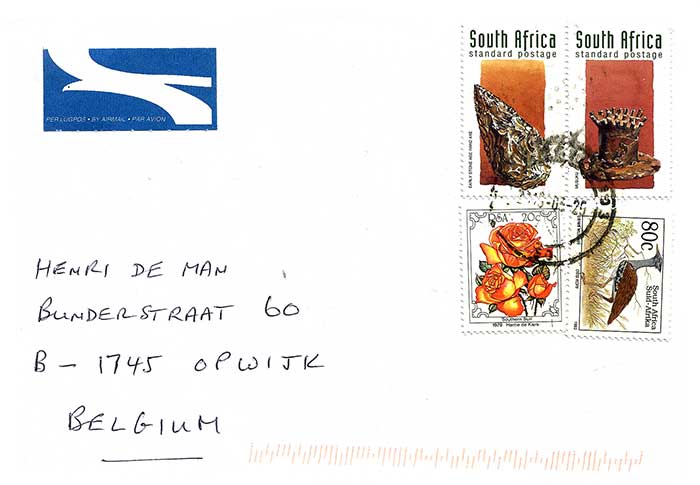 PER LUGPOS • BY AIRMAIL • PAR AVION
South Africa
standard postage
EARLY STONE AGE HAND AXE
South Africa
standard postage
RSA 20c
Southern Sun
1979 Hettie de Kerk
80c
South Africa
Suid-Afrika
1993
HENRI DE MAN
BUNDERSTRAAT 60
B - 1745 OPWIJK
BELGIUM